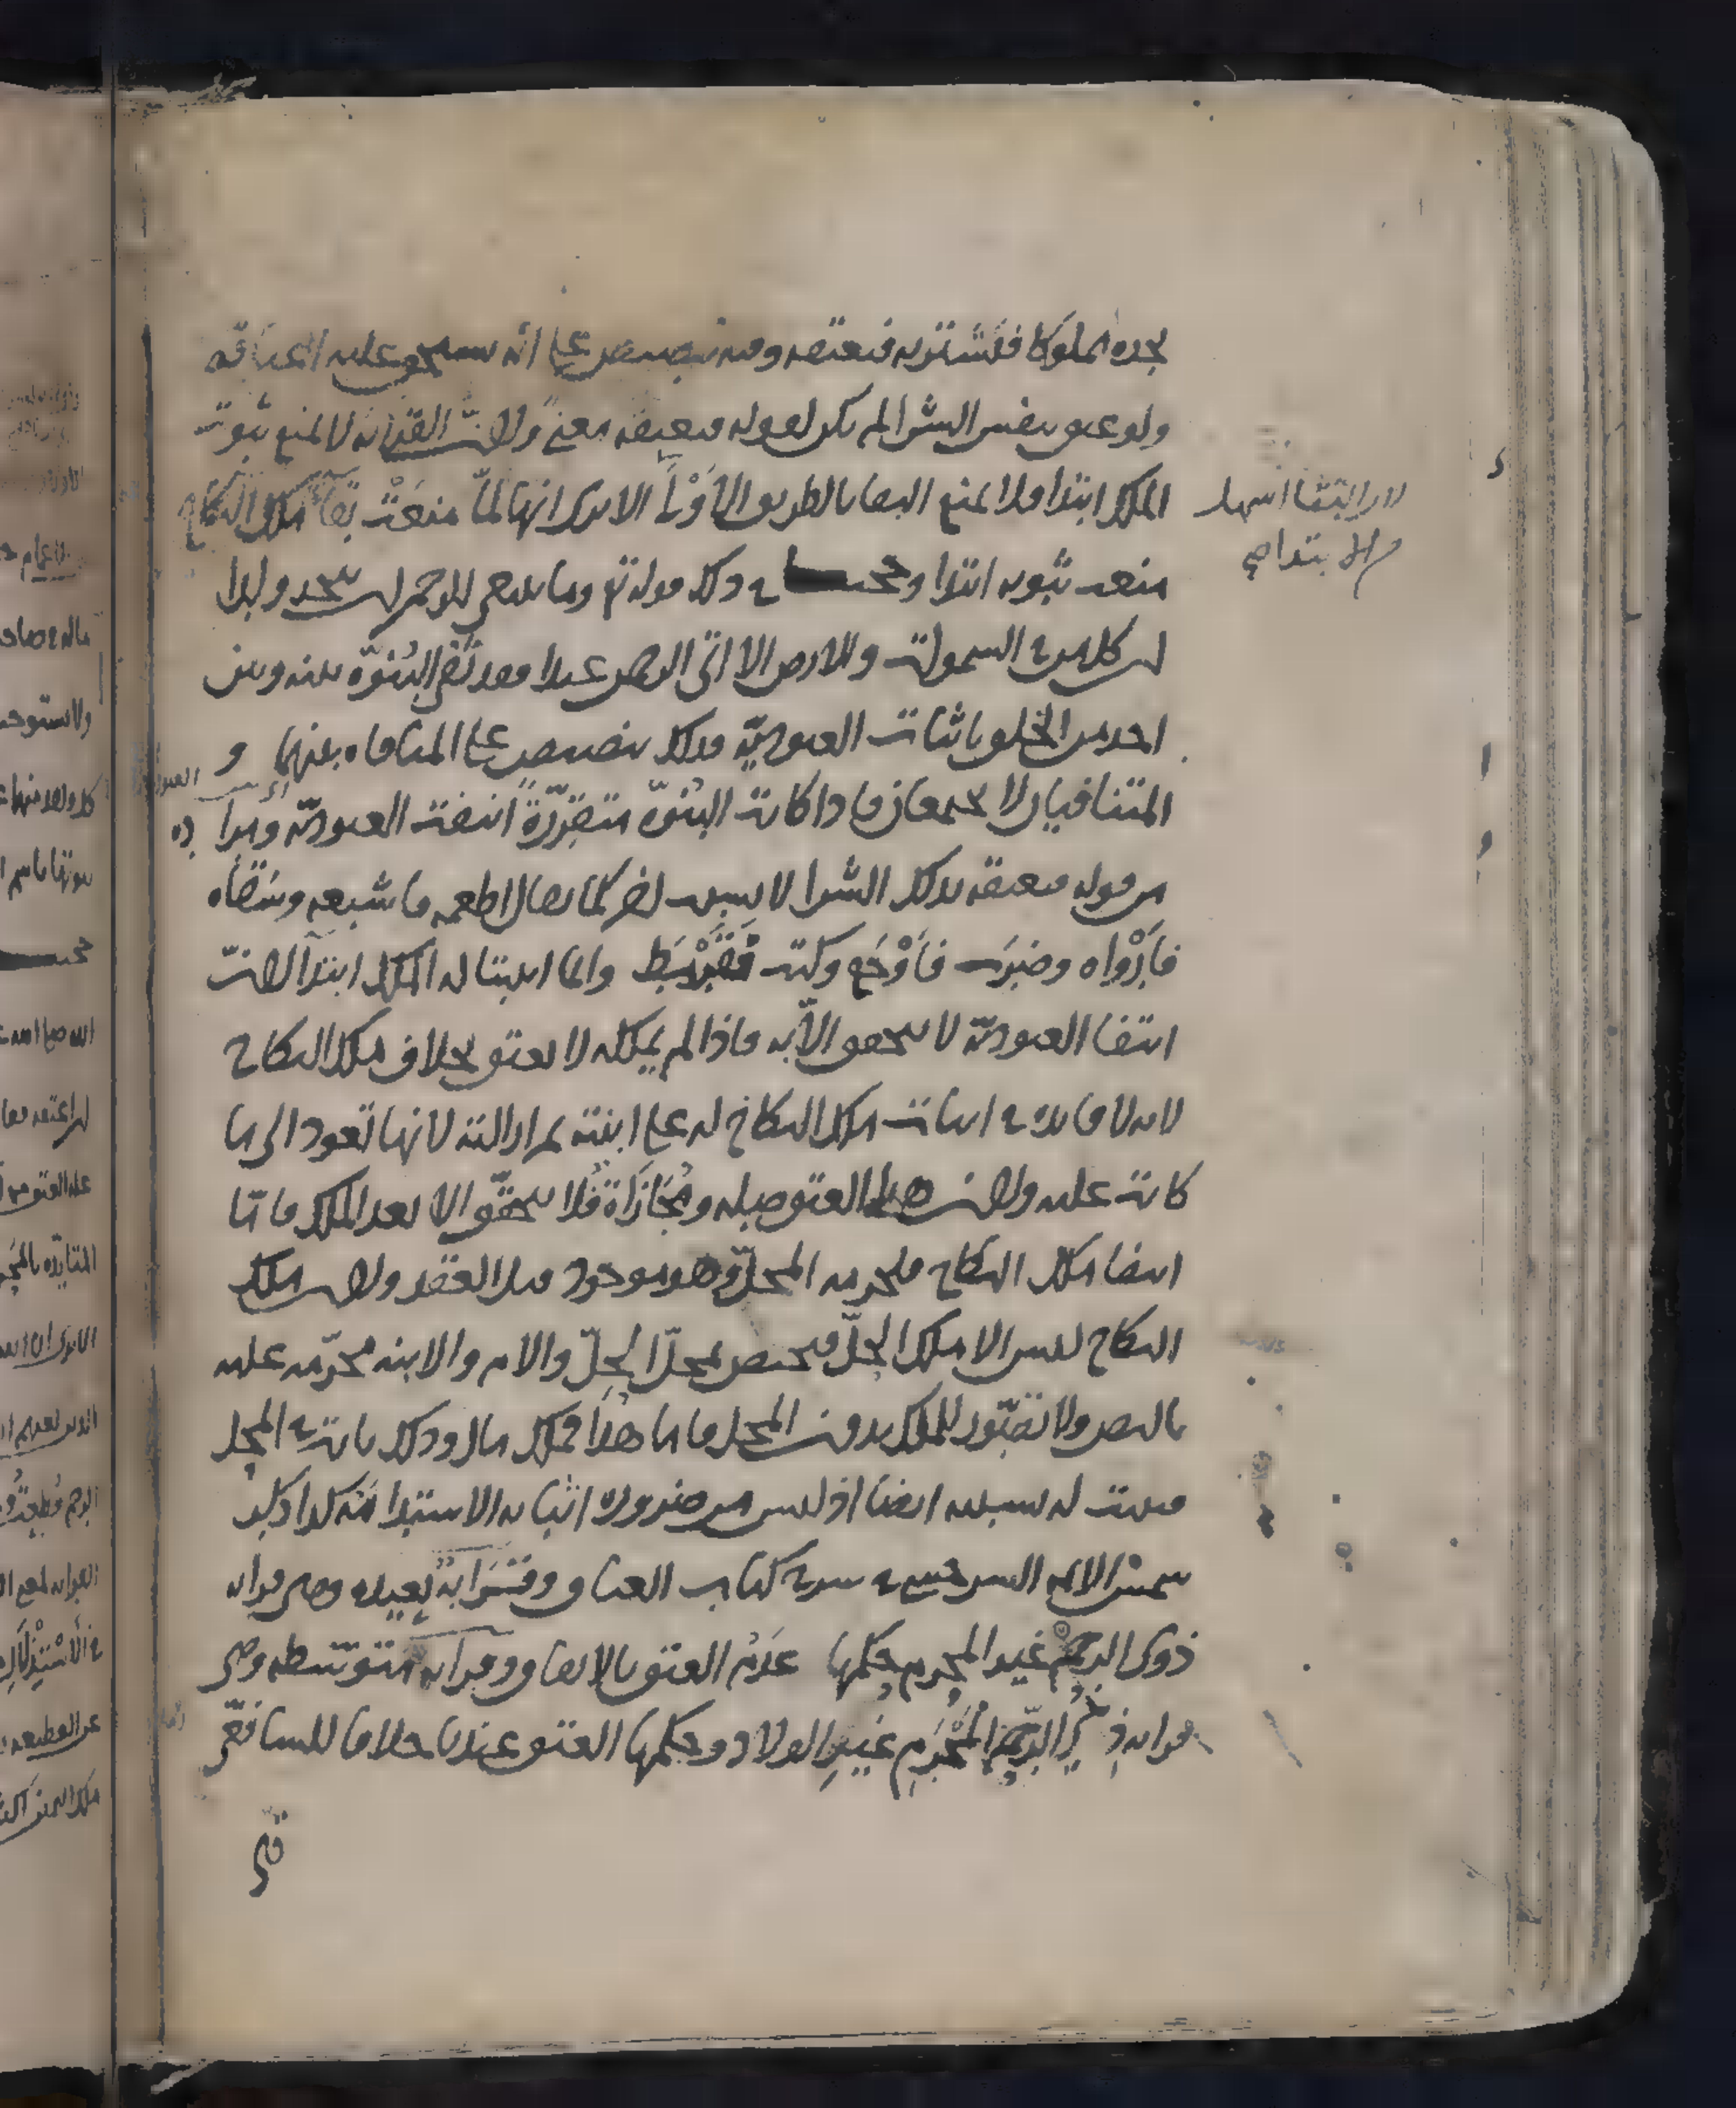 يجده مملوكا فيشتريه فيعتقه وفيه تنصيص على أنه يستحق عليه اعتاقه
ولو عتق بنفس الشرا لم يكن لقوله فيعتقه معنى ولان القرابة لا تمنع ثبوت
الملك ابتدا فلا تمنع البقا بالطريق الاولى الا ترى انها لما منعت بقاء ملك النكاح
منعت ثبوته ابتدا وحجتنا في ذلك قوله تع وما ينبغي للرحمن ان يتخذ ولدا
ان كل من في السموات والارض الا اتى الرحمن عبدا فقد نفى البنوة بينه وبين
احد من الخلق باثبات العبودية فذلك تنصيص على المنافاة بينهما و
المتنافيان لا يجتمعان فاذا كانت البنوة متقررة انتفت العبودية ومراده
من قوله فيعتقه بذلك الشرا لا بسبب اخر كما يقال اطعمه فاشبعه وسقاه
فارواه وضرب فاوجع وكتب فقرمط وانما اثبتنا له الملك ابتداء لان
انتفا العبودية لا يتحقق الا به فاذا لم يملكه لا يعتق بخلاف ملك النكاح
لانه لا فايدة في اثبات ملك النكاح له على ابنته ثم ازالته لانها تعود الى ما
كانت عليه ولان هذا العتق صلة ومجازاة فلا يتحقق الا بعد الملك فاما
انتفا ملك النكاح فلحرمة المحل وهو موجود قبل العقد ولان ملك
النكاح ليس الا ملك الحل فيختص بمحل الحل والام والابنة محرمة عليه
بالنص ولا تصور للملك بدون المحل فاما هذا فملك مال وذلك ثابت في المحل
فيثبت له بسببه ايضا اذ ليس من ضرورة اثباته الاستدامة كذا ذكره
شمس الايمة السرخسي في كتاب العتاق وقرابة بعيدة وهي قرابة
ذوى الرحم غير المحرم حكمها عدم العتق بالاتفاق وقرابة متوسطة وهي
قرابة ذى الرحم المحرم غير الولاد وحكمها العتق عندنا خلافا للشافعى
لان البقا اسهل
من الابتدا صح